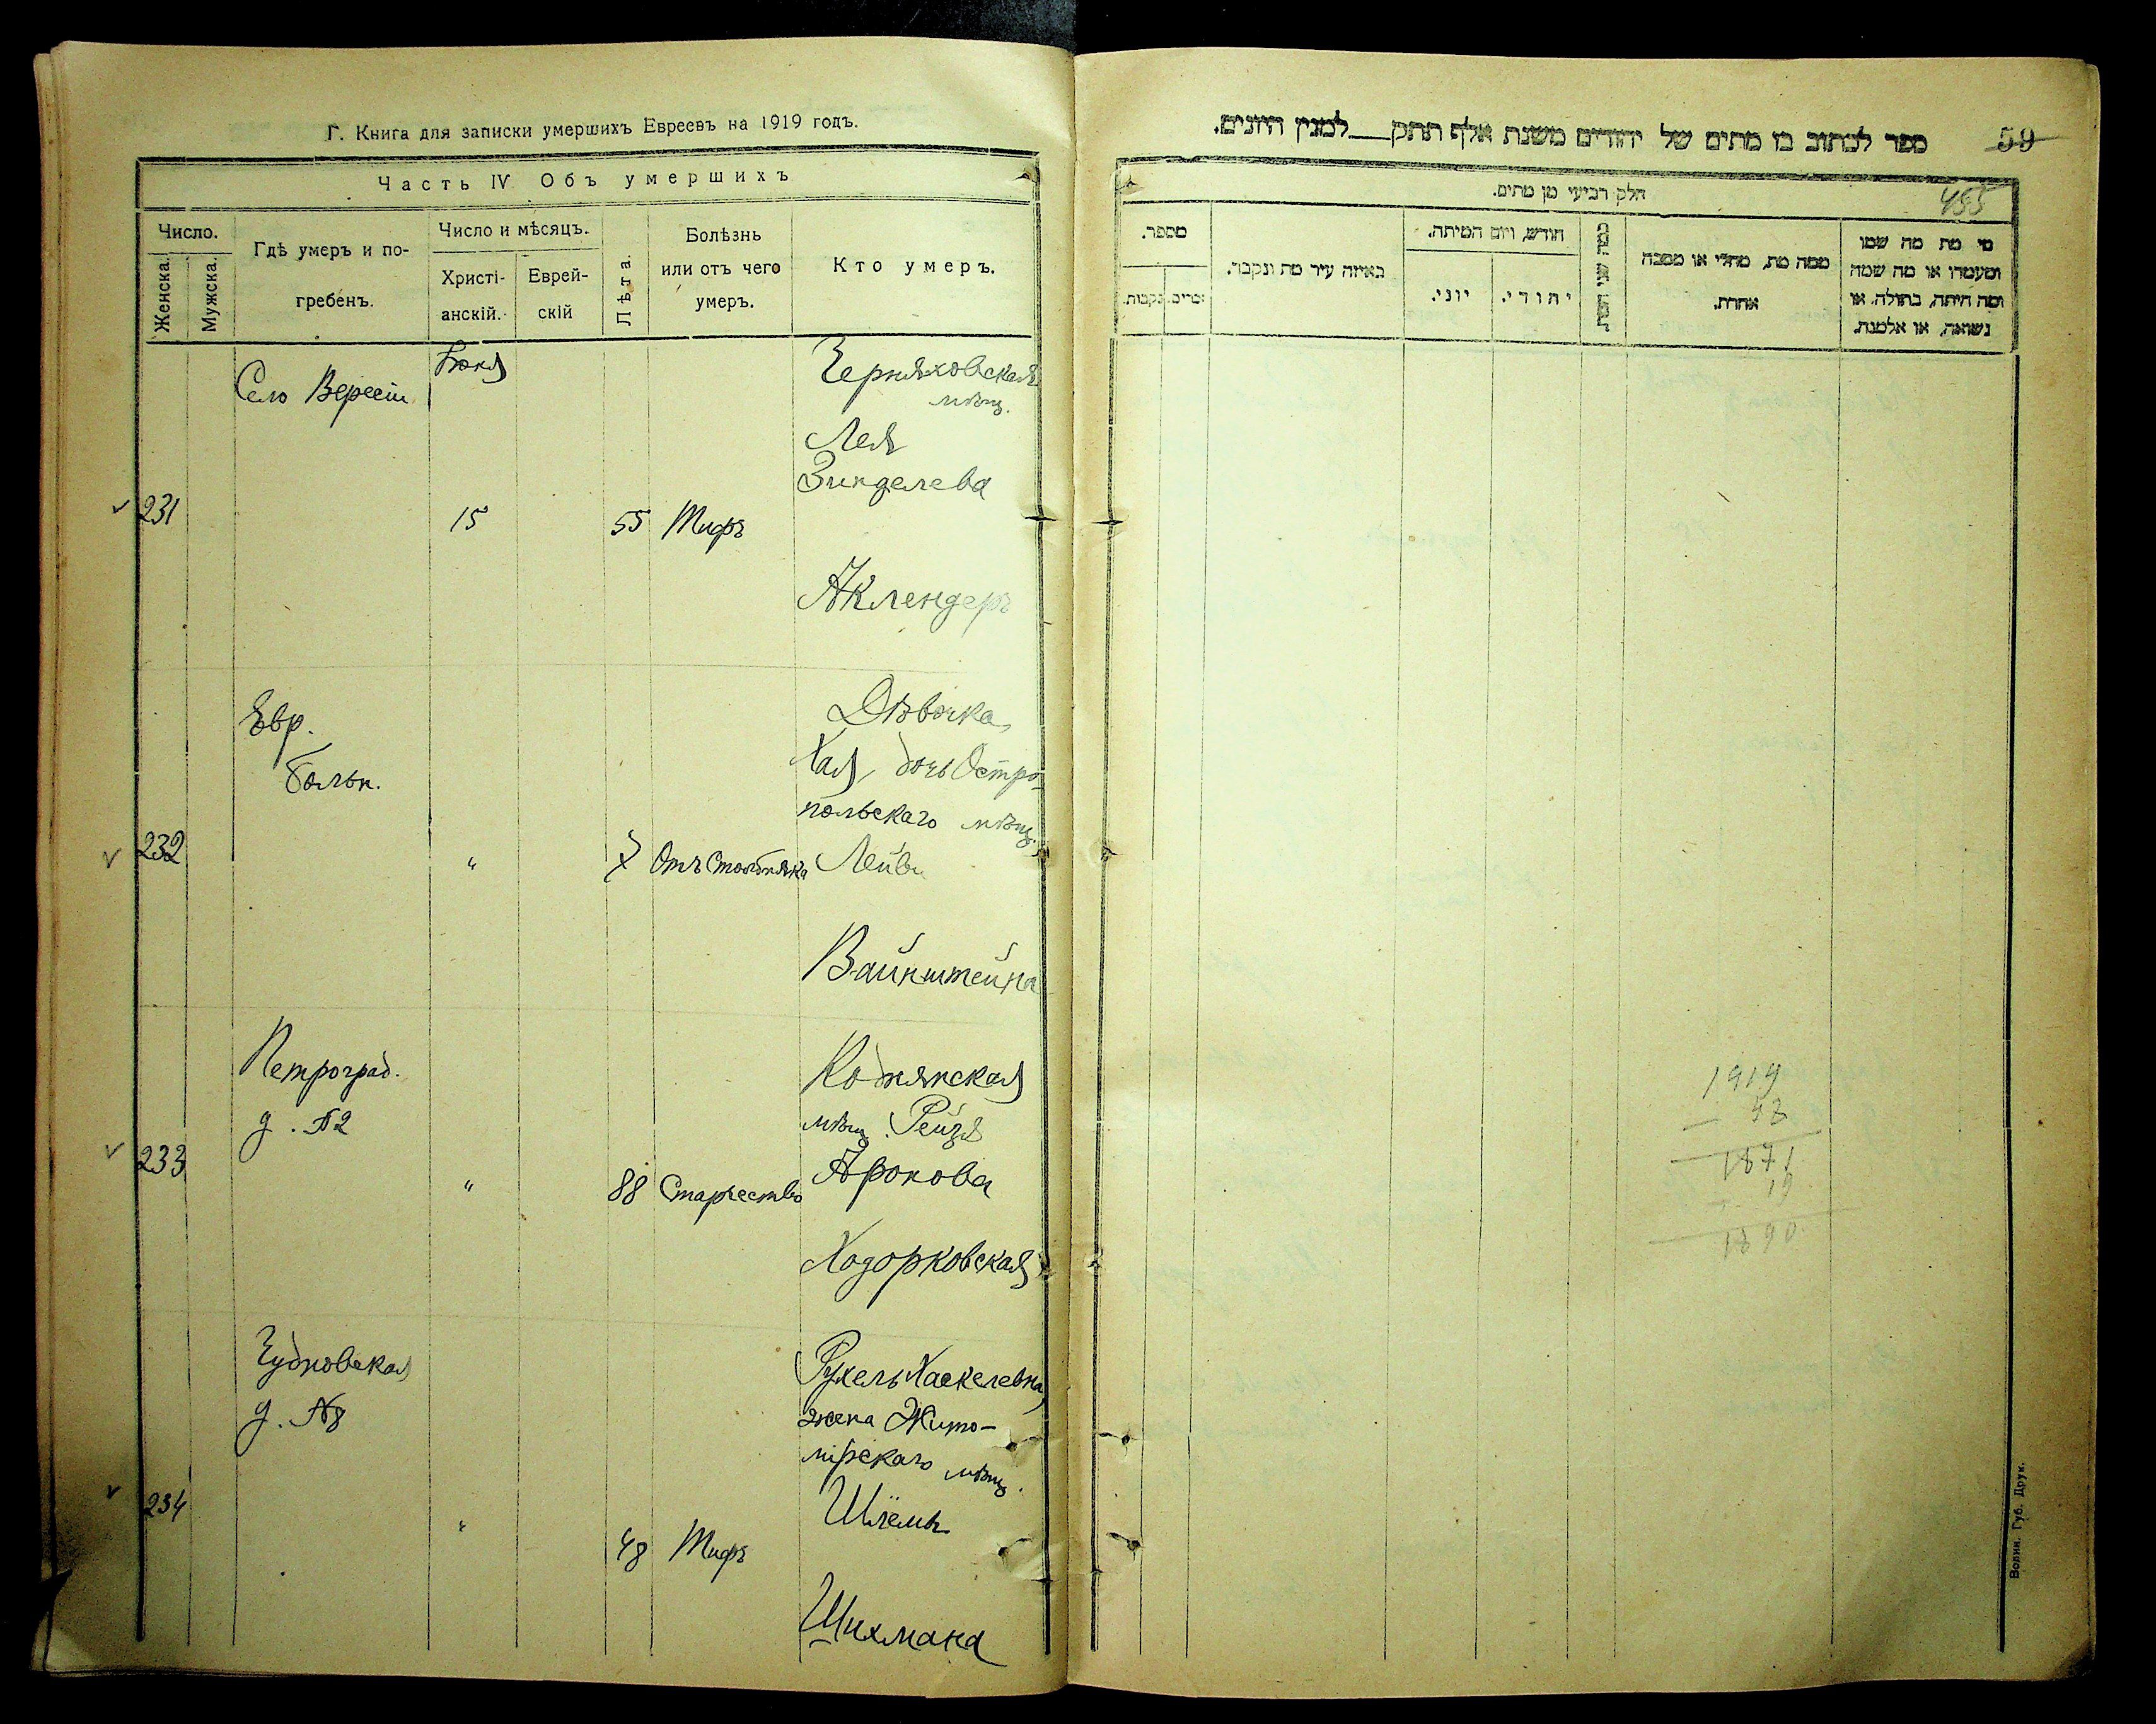 Г. Книга для записки умершихъ Евреевъ на 1919 годъ.
Часть IV Объ умершихъ
Число.
Женска.
Мужска.
Гдѣ умеръ и по-
гребенъ.
Число и мѣсяцъ.
Христі-
анскій.
Еврей-
скій
Лѣта.
Болѣзнь
или отъ чего
умеръ.
Кто умеръ.
231
Село
Юня
15
55
Тифъ
Черняховская
мѣщ.
Лея
Зинделева
Аклендеръ
232
Евр.
больн.
"
7
Отъ Столбняка
Дѣвочка
Хая, дочь Остро-
польскаго мѣщ.
Лейбы
Вайнштейна
233
Петроград.
д. №2
"
88
Старчество
Коднянская
мѣщ. Рейзя
Аронова
Ходорковская
234
Чудновская
д. №8
"
48
Тифъ
Рухель Хаскелевна,
жена Жито-
мірскаго мѣщ.
Шлёмы
Шихмана
ספר לכתוב בו מתים של יהודים משנת אלף תתק___למנין היונים.
59
455
חלק רביעי מן מתים.
מי מת מה שמו
ומעמדו או מה שמה
ומה היתה, בתולה, או
נשואה, או אלמנה.
ממה מת, מחלי או מסבה
אחרת.
כמה שני המת
חודש, ויום המיתה.
יהודי.
יוני.
באיזה עיר מת ונקבר.
מספר.
זכרים.
נקבות.
1919
1871
19
1890
Волин. Губ. Друк.